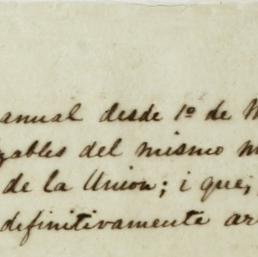 anual desde 1º de
del mismo
de la Union; i que,
definitivamente